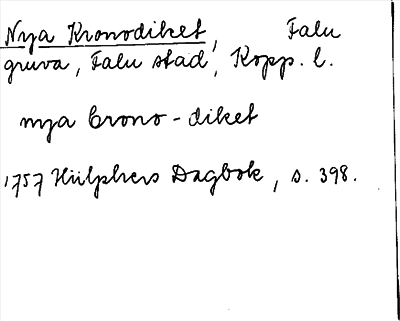 Nya Kronodiket, Falu
gruva, Falu stad, Kopp. l.
nya Crono-diket
1757 Hülphers Dagbok, s. 398.